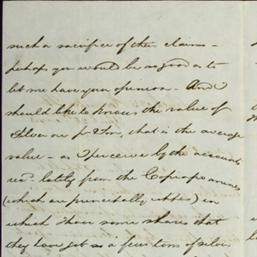 such a sacrifice of their claims –
perhaps you would be so good as to
let me have your opinion – And I
should like to know the value of
Silver ore p Ton, that is the average
value – as I perceive by the accounts
recd. lately from the Copiapo mines
(which are principally silver) in
which I have some shares that
they have got as a few tons of silver